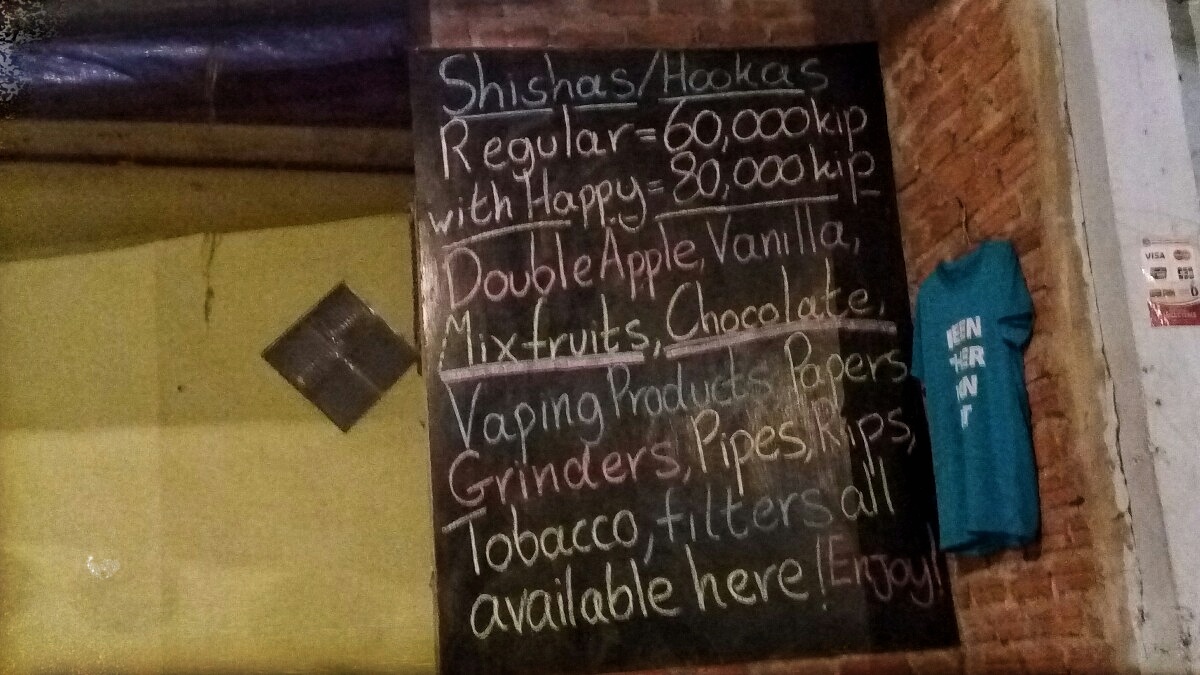 Shishas/Hookas
Regular = 60,000 kip
with Happy = 80,000 kip
Double Apple, Vanilla,
Mix fruits, Chocolate,
Vaping Products Papers
Grinders, Pipes, Rips,
Tobacco, filters all
available here! Enjoy!
VISA